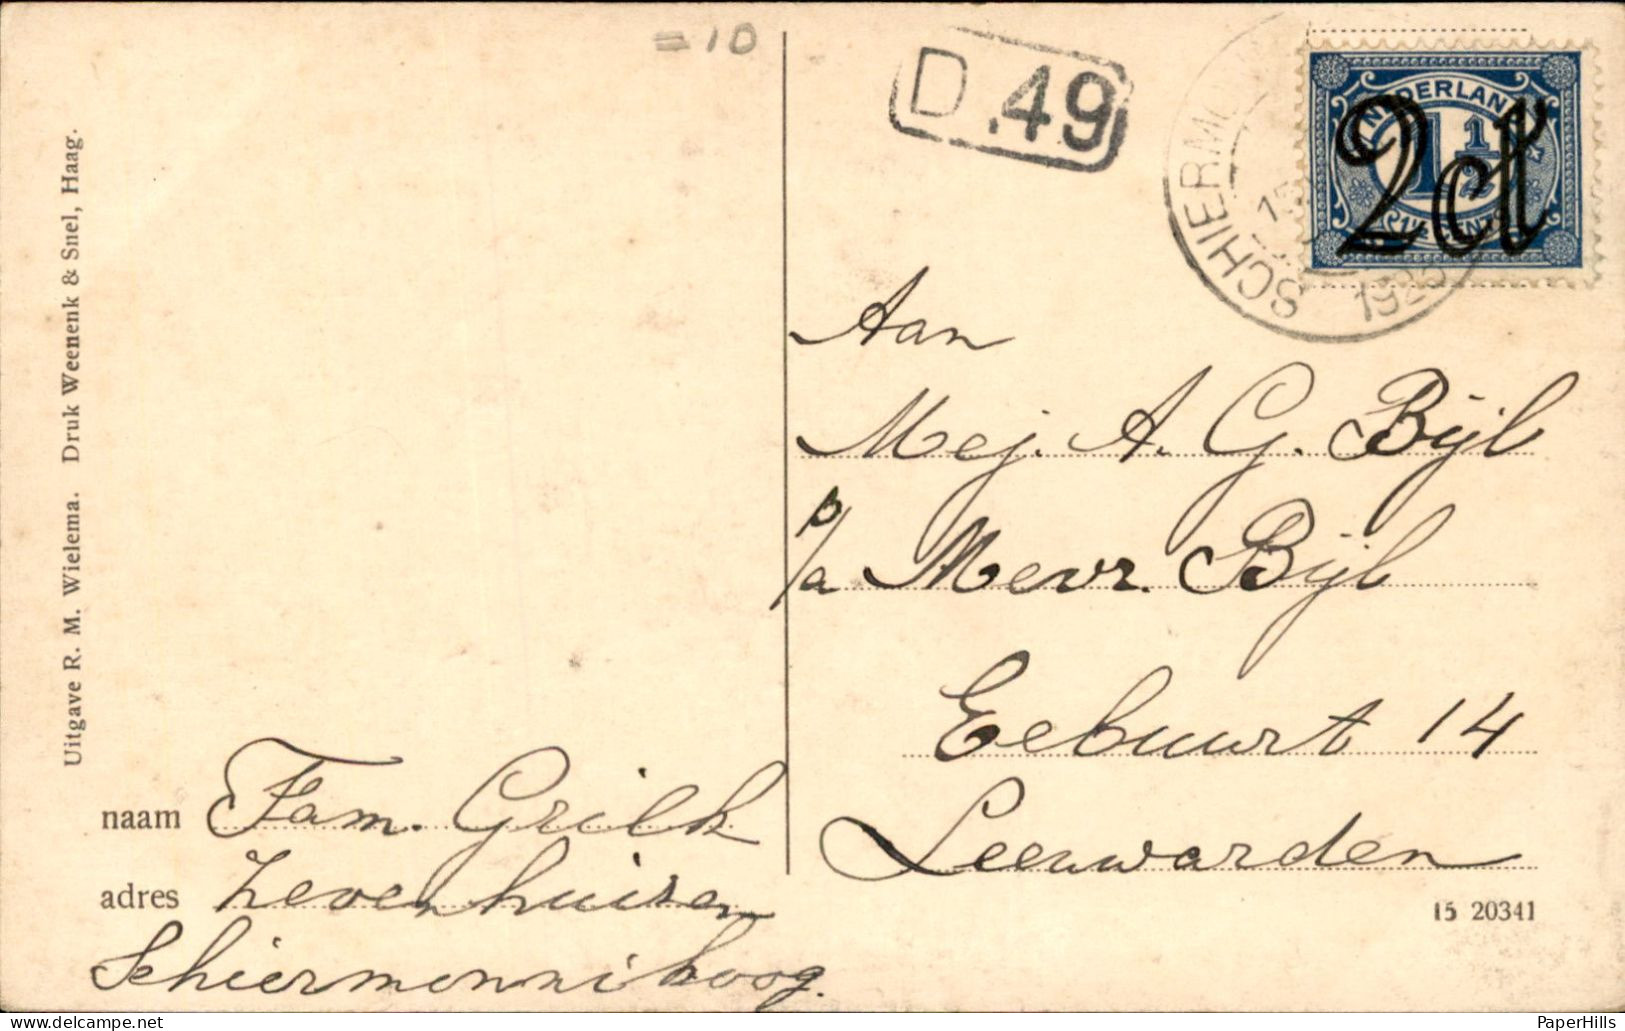 =10
D.49
SCHIERMO
1923
NEDERLAND
1½
2ct
1½ CENT
Uitgave R. M. Wielema. Druk Weenenk & Snel, Haag.
Aan
Mej. A. G. Bijl
p/a Mevr. Bijl
Eebuurt 14
Leeuwarden
naam Fam. Grilk
adres Zevenhuizen
Schiermonnikoog.
15 20341
PaperHills
www.delcampe.net